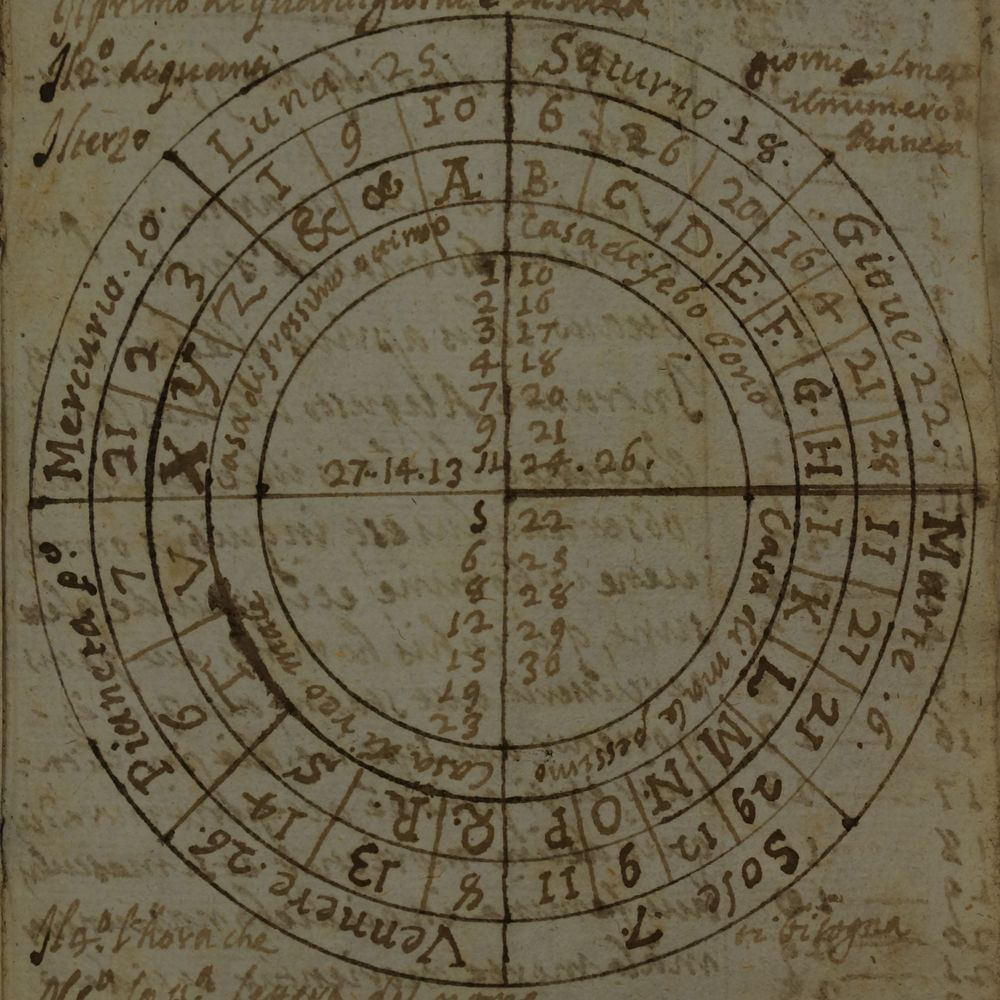 Il primo di quanti giorni è
Il 2º di quanti
Il terzo
giorni è il mese
il numero
Pianeta
Luna . 25.
Saturno . 18.
Gioue . 22.
Marte . 6.
Sole . 7.
Vennere . 26.
Pianeta pº.
Mercurio . 10.
I 9 10 6 26 20 16 4 21 28
II 27 21 29 12 9 11 8 13 14
6 7 21 2 3
& A. B. C. D. E. F. G. H
I K L M. N. O P. Q. R. S
T V X Y Z
Casa di prossimo
Casa di febo bono
Casa di pessimo
Casa di reo male
1 10
2 16
3 17
4 18
7 20
9 21
27. 14. 13 11 24. 26.
5 22
6 25
8 28
12 29
15 30
19
23
Il 4º. l'hora che
si bisogna